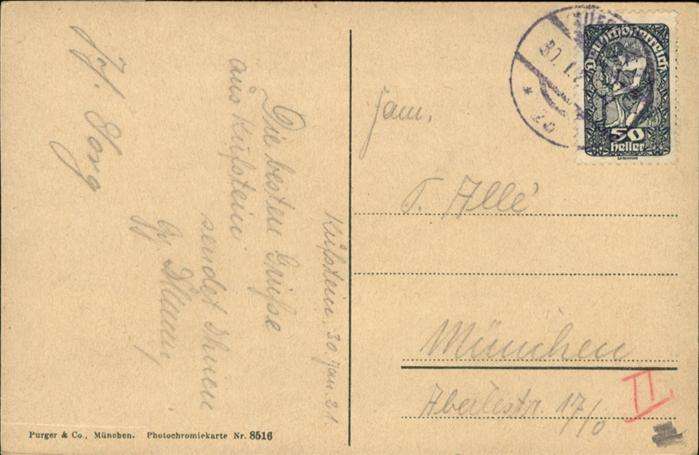 Kufstein, 30 Jan 21.
Die besten Grüße
aus Kufstein
sendet Ihnen
Jos.
Fam.
T. Allé
München
Aberlestr. 17/0
II
Deutschösterreich
50
heller
30.I.2
Purger & Co., München. Photochromiekarte Nr. 8516